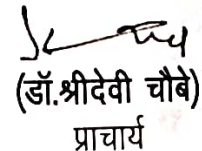 (डॉ.श्रीदेवी चौबे)
प्राचार्य